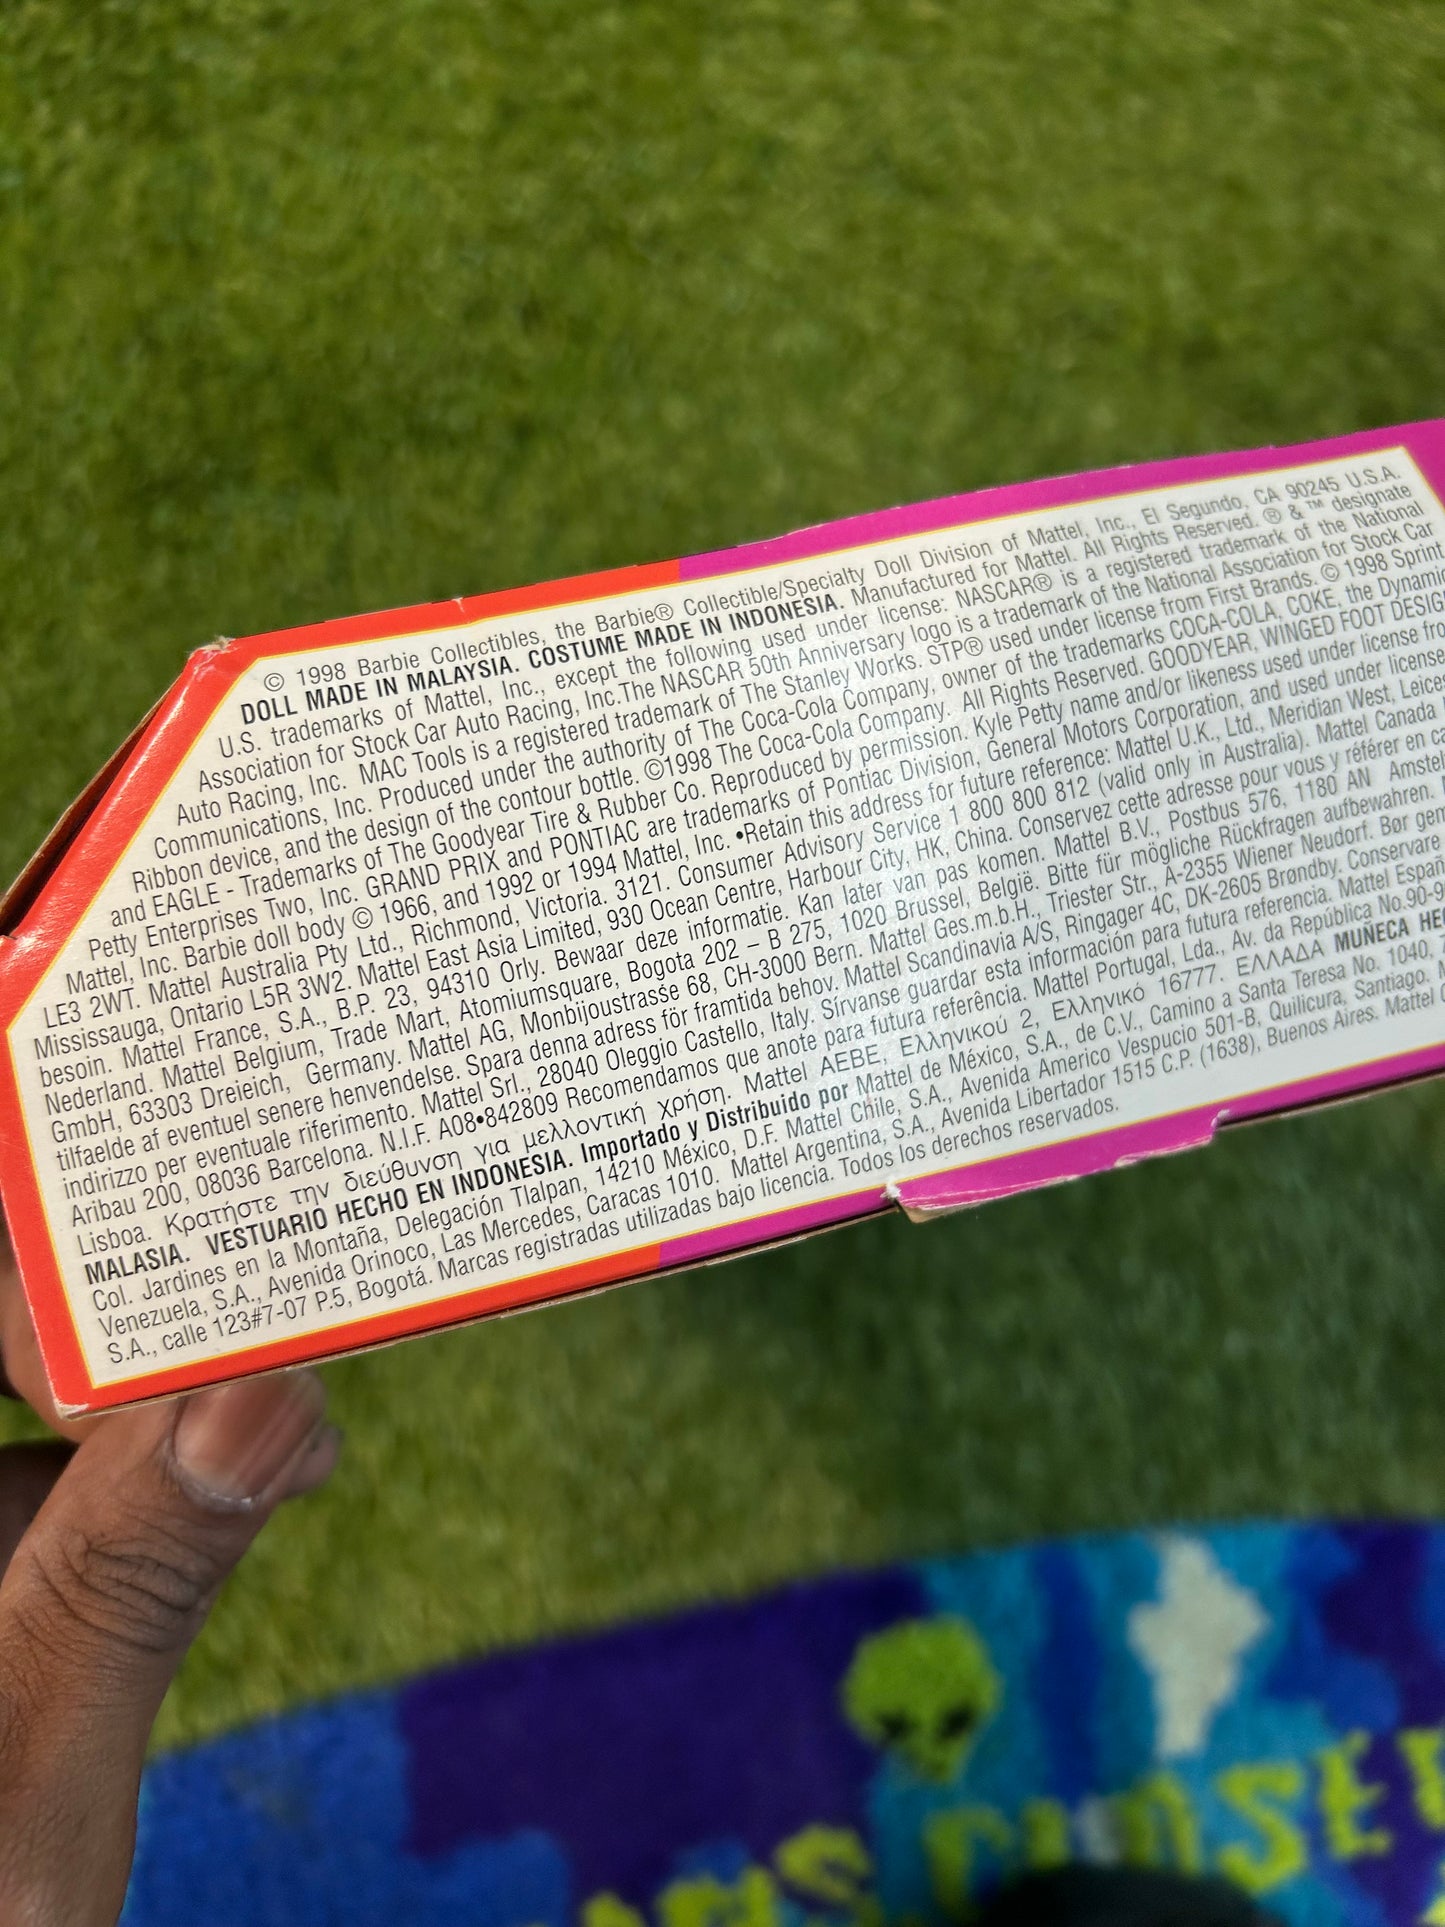 © 1998 Barbie Collectibles, the Barbie® Collectible/Specialty Doll Division of Mattel, Inc., El Segundo, CA 90245 U.S.A.
DOLL MADE IN MALAYSIA. COSTUME MADE IN INDONESIA. Manufactured for Mattel. All Rights Reserved. ® & ™ designate
U.S. trademarks of Mattel, Inc., except the following used under license: NASCAR® is a registered trademark of the National
Association for Stock Car Auto Racing, Inc.The NASCAR 50th Anniversary logo is a trademark of the National Association for Stock Car
Auto Racing, Inc. MAC Tools is a registered trademark of The Stanley Works. STP® used under license from First Brands. © 1998 Sprint
Communications, Inc. Produced under the authority of The Coca-Cola Company, owner of the trademarks COCA-COLA, COKE, the Dynamic
Ribbon device, and the design of the contour bottle. ©1998 The Coca-Cola Company. All Rights Reserved. GOODYEAR, WINGED FOOT DESIG
and EAGLE - Trademarks of The Goodyear Tire & Rubber Co. Reproduced by permission. Kyle Petty name and/or likeness used under license fro
Petty Enterprises Two, Inc. GRAND PRIX and PONTIAC are trademarks of Pontiac Division, General Motors Corporation, and used under license
Mattel, Inc. Barbie doll body © 1966, and 1992 or 1994 Mattel, Inc. •Retain this address for future reference: Mattel U.K., Ltd., Meridian West, Leices
LE3 2WT. Mattel Australia Pty Ltd., Richmond, Victoria. 3121. Consumer Advisory Service 1 800 800 812 (valid only in Australia). Mattel Canada
Mississauga, Ontario L5R 3W2. Mattel East Asia Limited, 930 Ocean Centre, Harbour City, HK, China. Conservez cette adresse pour vous y référer en ca
besoin. Mattel France, S.A., B.P. 23, 94310 Orly. Bewaar deze informatie. Kan later van pas komen. Mattel B.V., Postbus 576, 1180 AN Amstel
Nederland. Mattel Belgium, Trade Mart, Atomiumsquare, Bogota 202 – B 275, 1020 Brussel, België. Bitte für mögliche Rückfragen aufbewahren.
GmbH, 63303 Dreieich, Germany. Mattel AG, Monbijoustrasse 68, CH-3000 Bern. Mattel Ges.m.b.H., Triester Str., A-2355 Wiener Neudorf. Bør gem
tilfaelde af eventuel senere henvendelse. Spara denna adress för framtida behov. Mattel Scandinavia A/S, Ringager 4C, DK-2605 Brøndby. Conservare
indirizzo per eventuale riferimento. Mattel Srl., 28040 Oleggio Castello, Italy. Sírvanse guardar esta información para futura referencia. Mattel Españ
Aribau 200, 08036 Barcelona. N.I.F. A08•842809 Recomendamos que anote para futura referência. Mattel Portugal, Lda., Av. da República No.90-9
Lisboa. Κρατήστε την διεύθυνση για μελλοντική χρήση. Mattel AEBE, Ελληνικού 2, Ελληνικό 16777. ΕΛΛΑΔΑ MUÑECA HE
MALASIA. VESTUARIO HECHO EN INDONESIA. Importado y Distribuido por Mattel de México, S.A., de C.V., Camino a Santa Teresa No. 1040,
Col. Jardines en la Montaña, Delegación Tlalpan, 14210 México, D.F. Mattel Chile, S.A., Avenida Americo Vespucio 501-B, Quilicura, Santiago. M
Venezuela, S.A., Avenida Orinoco, Las Mercedes, Caracas 1010. Mattel Argentina, S.A., Avenida Libertador 1515 C.P. (1638), Buenos Aires. Mattel
S.A., calle 123#7-07 P.5, Bogotá. Marcas registradas utilizadas bajo licencia. Todos los derechos reservados.